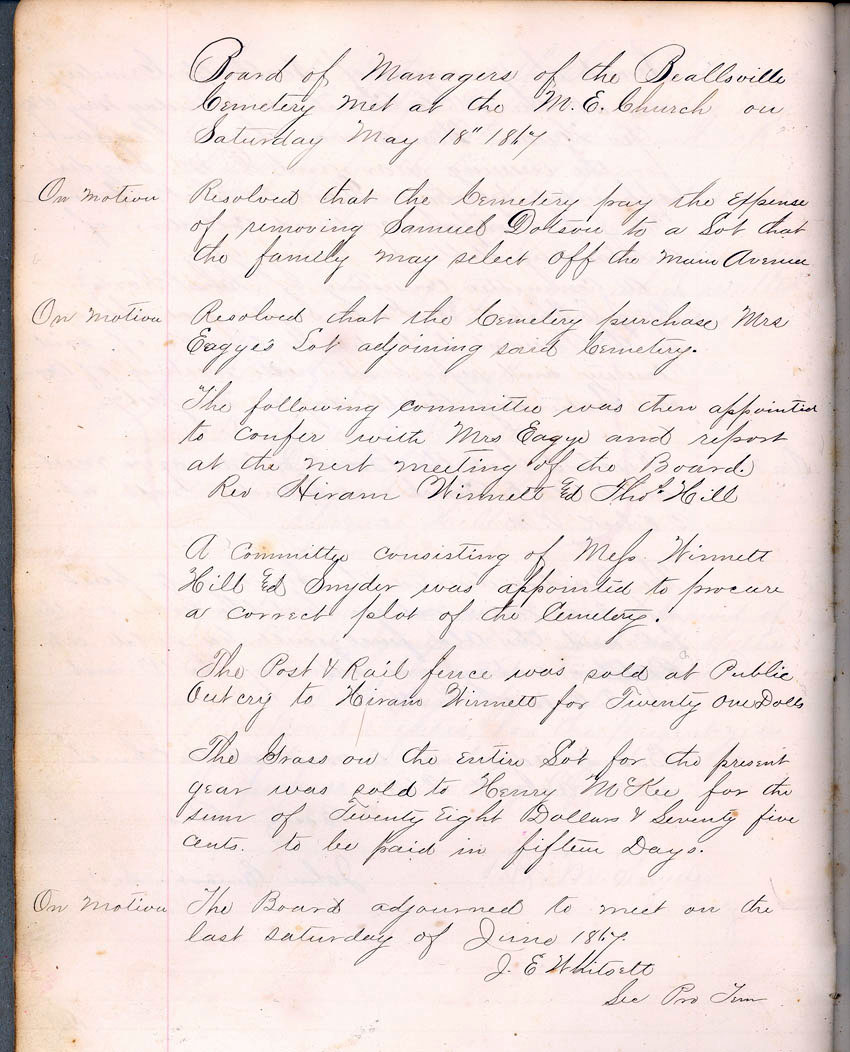 Board of Managers of the Beallsville
Cemetery met at the M. E. Church on
Saturday May 18" 1867.
On Motion Resolved that the Cemetery pay the Expense
of removing Samuel Dotson to a Lot that
the family may select off the Main Avenue
On Motion Resolved that the Cemetery purchase Mrs
Eagye's Lot adjoining said Cemetery.
The following committee was then appointed
to confer with Mrs Eagye and report
at the next meeting of the Board.
Rev Hiram Winnett Ed Thos Hill
A committee consisting of Mess. Winnett
Hill Ed Snyder was appointed to procure
a correct plot of the Cemetery.
The Post & Rail fence was sold at Public
Outcry to Hiram Winnett for Twenty One Dolls
The Grass on the entire Lot for the present
year was sold to Henry McKee for the
sum of Twenty Eight Dollars & Seventy five
cents. to be paid in fifteen Days.
On Motion The Board adjourned to meet on the
last Saturday of June 1867.
J. E Whitsett
Sec Pro Tem